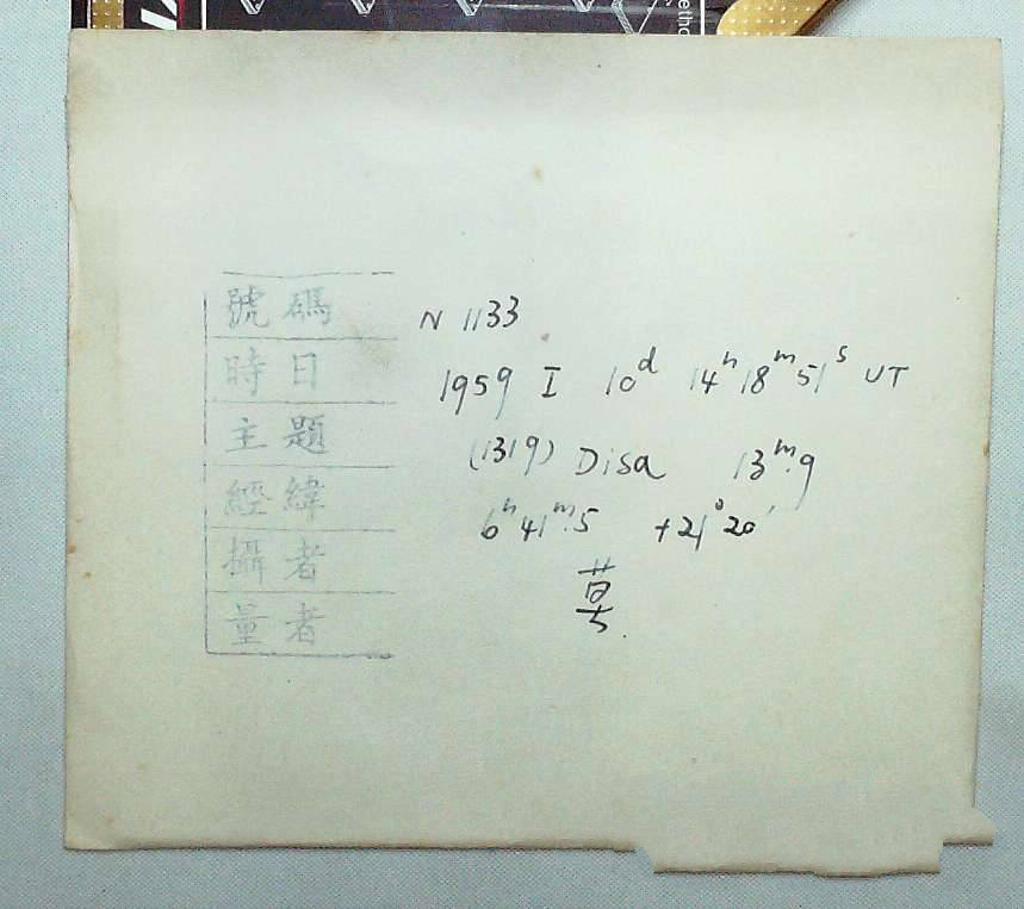 號碼 N 1133
時日 1959 I 10ᵈ 14ʰ 18ᵐ 51ˢ UT
主題 (1319) Disa 13ᵐ.9
經緯 6ʰ 41ᵐ.5 +21° 20′
攝者 莫
量者